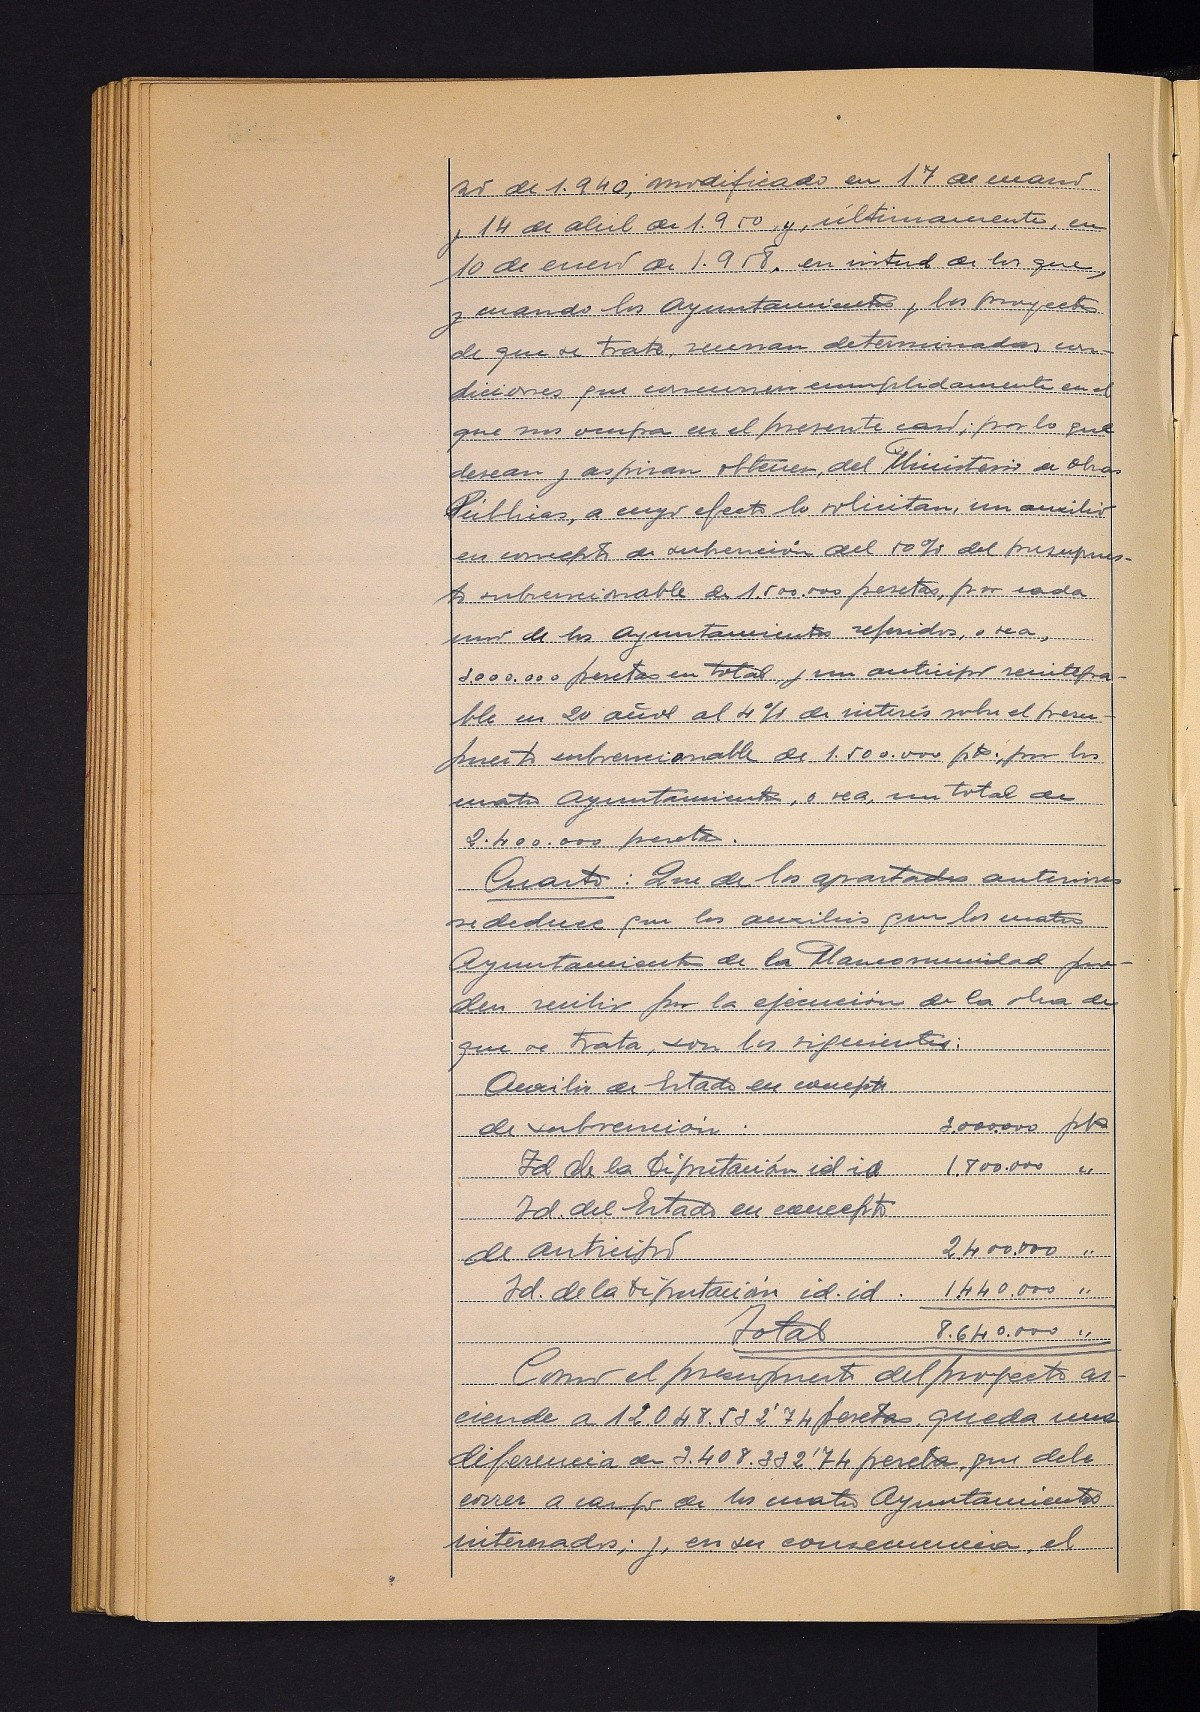 zo de 1.940, modificado en 17 de mayo
y 14 de abril de 1.950, y, últimamente, en
10 de enero de 1.958, en virtud de los que,
y cuando los Ayuntamientos y los proyectos
de que se trata, reunan determinadas con-
diciones que concurren cumplidamente en el
que nos ocupa en el presente caso; por lo que
desean y aspiran obtener, del Ministerio de Obras
Públicas, a cuyo efecto lo solicitan, un auxilio
en concepto de subvención del 50% del presupues-
to subvencionable de 1.500.000 pesetas, por cada
uno de los Ayuntamientos referidos, o sea,
3.000.000 pesetas en total, y un anticipo reintegra-
ble en 20 años al 4% de interés sobre el presu-
puesto subvencionable de 1.500.000 pts., por los
cuatro Ayuntamientos, o sea, un total de
2.400.000 pesetas.
Cuarto: Que de los apartados anteriores
se deduce que los auxilios que los cuatro
Ayuntamientos de la Mancomunidad pue-
den recibir por la ejecución de la obra de
que se trata, son los siguientes:
Auxilio de Estado en concepto
de subvención. 3.000.000 pts
Id. de la Diputación id id 1.800.000 "
Id. del Estado en concepto
de anticipo 2.400.000 "
Id. de la Diputación id. id. 1.440.000 "
Total 8.640.000 "
Como el presupuesto del proyecto as-
ciende a 12.048.532'74 pesetas, queda una
diferencia de 3.408.332'74 pesetas, que debe
correr a cargo de los cuatro Ayuntamientos
interesados; y, en su consecuencia, el